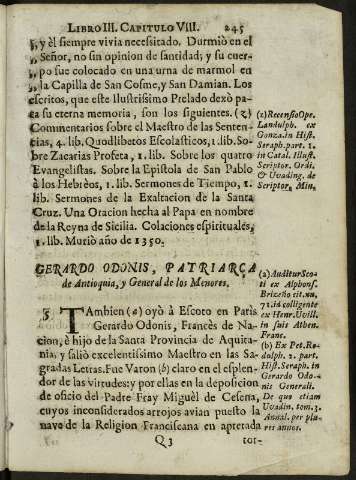 LIBRO III. CAPITULO VIII. 245
„ y èl siempre vivia necessitado. Durmiò en el
„ Señor, no sin opinion de santidad; y su cuer-
„ po fue colocado en una urna de marmol en
„ la Capilla de San Cosme, y San Damian. Los
escritos, que este Ilustrissimo Prelado dexò pa-
ra su eterna memoria, son los siguientes. (z)
Commentarios sobre el Maestro de las Senten-
cias, 4. lib. Quodlibetos Escolasticos, 1. lib. So-
bre Zacarias Profeta, 1. lib. Sobre los quatro
Evangelistas. Sobre la Epistola de San Pablo
à los Hebrèos, 1. lib. Sermones de Tiempo, 1.
lib. Sermones de la Exaltacion de la Santa
Cruz. Una Oracion hecha al Papa en nombre
de la Reyna de Sicilia. Colaciones espirituales,
1. lib. Muriò año de 1350.
(z) Recensio Ope.
Landulph. ex
Gonza. in Hist.
Seraph. part. 1.
in Catal. Illust.
Scriptor. Ordi.
& Uvading. de
Scriptor. Min.
GERARDO ODONIS, PATRIARCA
de Antioquia, y General de los Menores.
5. TAmbien (a) oyò à Escoto en Paris
Gerardo Odonis, Francès de Na-
cion, è hijo de la Santa Provincia de Aquita-
nia, y saliò excelentissimo Maestro en las Sa-
gradas Letras. Fue Varon (b) claro en el esplen-
dor de las virtudes: y por ellas en la deposicion
de oficio del Padre Fray Miguèl de Cesena,
cuyos inconsiderados arrojos avian puesto la
nave de la Religion Franciscana en apretada
(a) Auditur Sco-
ti ex Alphons.
Brizeño tit. xn,
72. id colligente
ex Henr. Uvill.
in suis Athen.
Franc.
(b) Ex Pet. Ro-
dulph. 2. part.
Hist. Seraph. in
Gerardo Odo-
nis Generali.
De quo etiam
Uvadin. tom. 3.
Annal. per plu-
res annos.
Q3 tor-